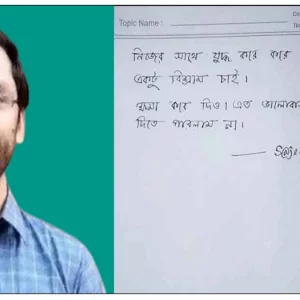 Topic Name :
নিজের সাথে যুদ্ধ করে করে
একটু বিশ্রাম চাই।
ক্ষমা করে দিও। এত ভালোবা
দিতে পারলাম না।